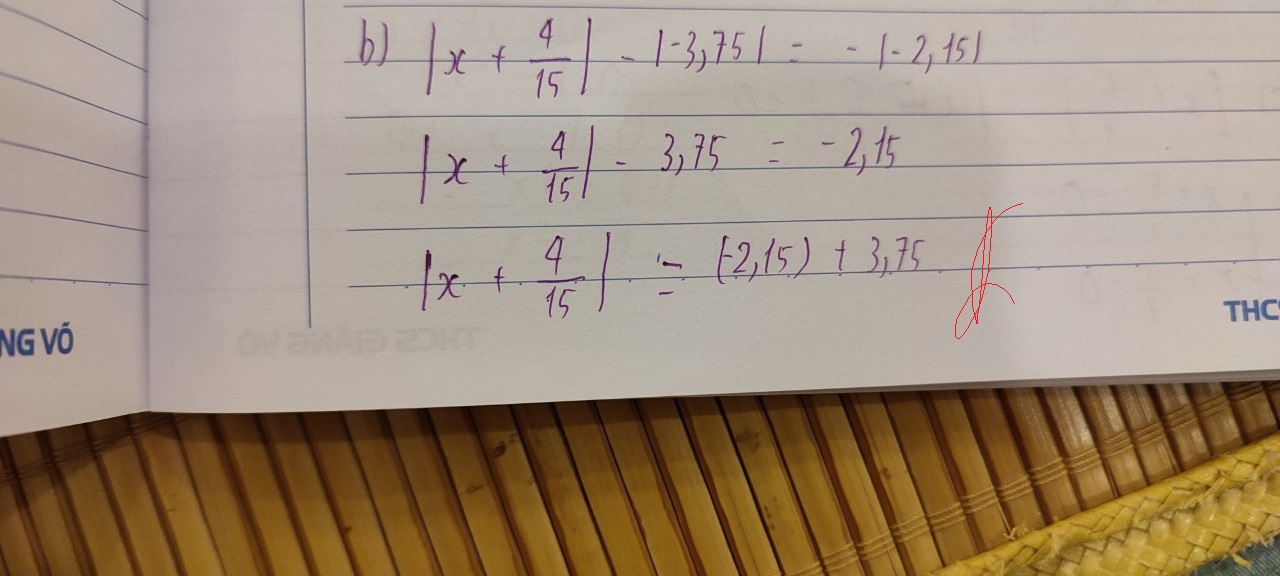 b) |x + 4/15| - |-3,75| = - |-2,15|
|x + 4/15| - 3,75 = -2,15
|x + 4/15| = (-2,15) + 3,75
NG VÕ
THCS GIẢNG VÕ
THC